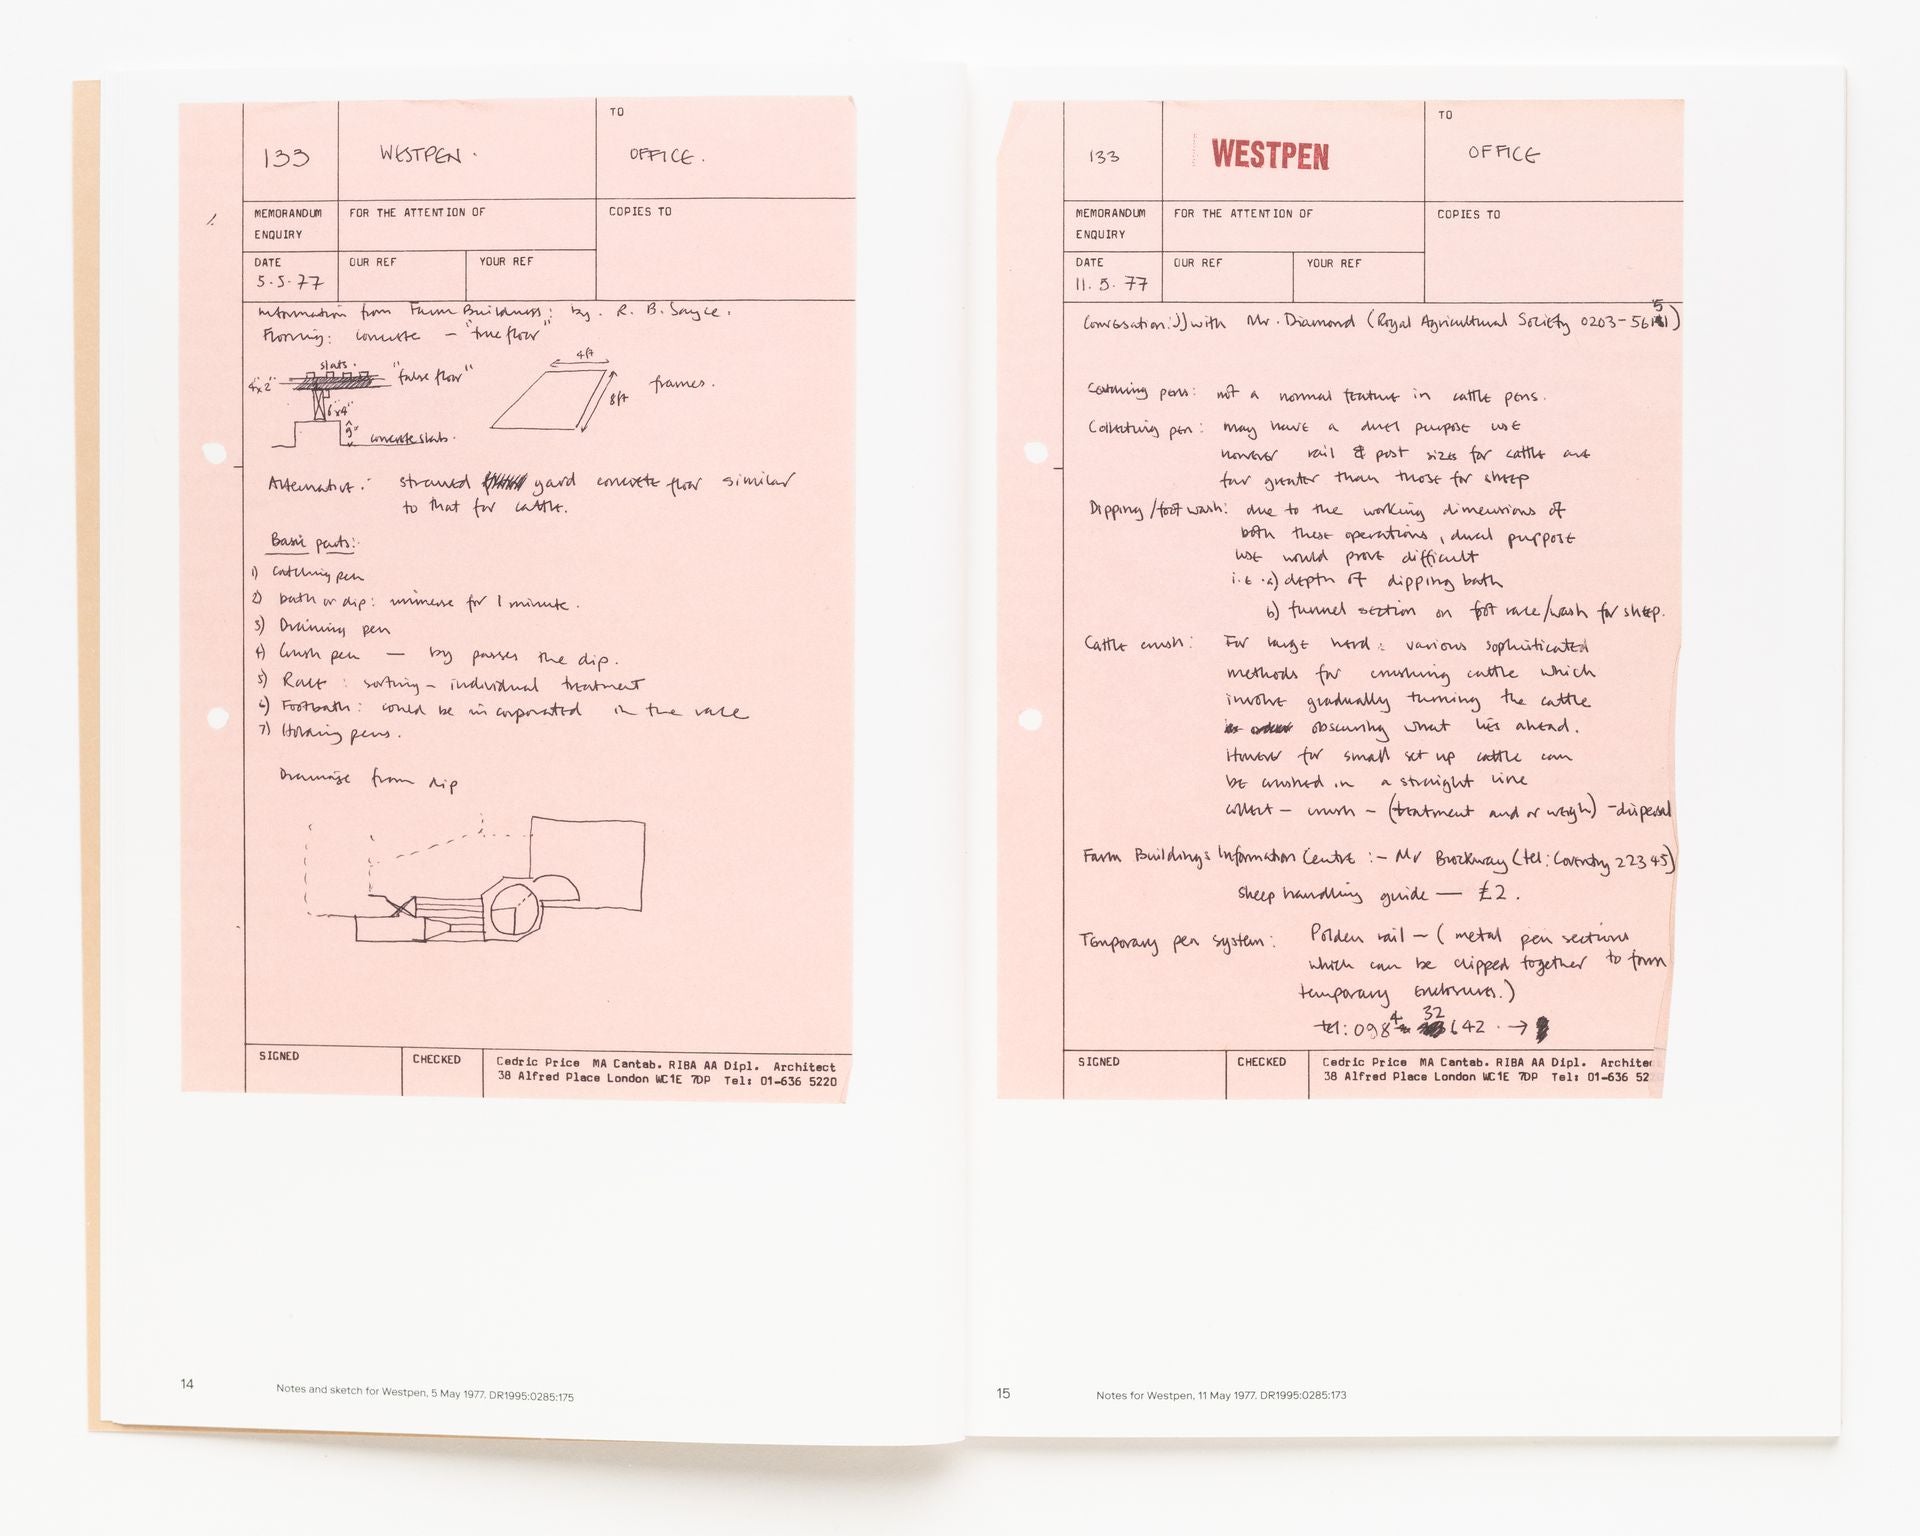 133
WESTPEN.
TO
OFFICE.
MEMORANDUM
ENQUIRY
FOR THE ATTENTION OF
COPIES TO
DATE
5.5.77
OUR REF
YOUR REF
Information from Farm Buildings: by. R. B. Sayce.
Flooring: concrete — "true floor"
slats.
4"x2"
"false floor"
6"x4"
9"
concrete slab.
4ft
8ft
frames.
Alternative: strawed yard concrete floor similar
to that for cattle.
Basic parts:
1) Catching pen
2) bath or dip: immerse for 1 minute.
3) Draining pen
4) Crush pen — by passes the dip.
5) Race: sorting – individual treatment
6) Footbath: could be incorporated in the race
7) Holding pens.
Drainage from dip
SIGNED
CHECKED
Cedric Price MA Cantab. RIBA AA Dipl. Architect
38 Alfred Place London WC1E 7DP Tel: 01-636 5220
14
Notes and sketch for Westpen, 5 May 1977. DR1995:0285:175
133
WESTPEN
TO
OFFICE
MEMORANDUM
ENQUIRY
FOR THE ATTENTION OF
COPIES TO
DATE
11.5.77
OUR REF
YOUR REF
Conversation: with Mr. Diamond (Royal Agricultural Society
Catching pens: not a normal feature in cattle pens.
Collecting pen: may have a duel purpose use
however rail & post sizes for cattle are
far greater than those for sheep
Dipping/foot wash: due to the working dimensions of
both these operations, dual purpose
use would prove difficult
i.e. a) depth of dipping bath
b) funnel section on foot race/wash for sheep.
Cattle crush: For large herd: various sophisticated
methods for crushing cattle which
involve gradually turning the cattle
obscuring what lies ahead.
However for small set up cattle can
be crushed in a straight line
collect – crush – (treatment and or weigh) – dispersal
Farm Buildings Information Centre :– Mr Brockway (tel: Coventry 22345)
sheep handling guide — £2.
Temporary pen system: Polden rail – ( metal pen sections
which can be clipped together to form
temporary enclosures.)
tel: 0984 32 642 . →
SIGNED
CHECKED
Cedric Price MA Cantab. RIBA AA Dipl. Architec
38 Alfred Place London WC1E 7DP Tel: 01-636 52
15
Notes for Westpen, 11 May 1977. DR1995:0285:173